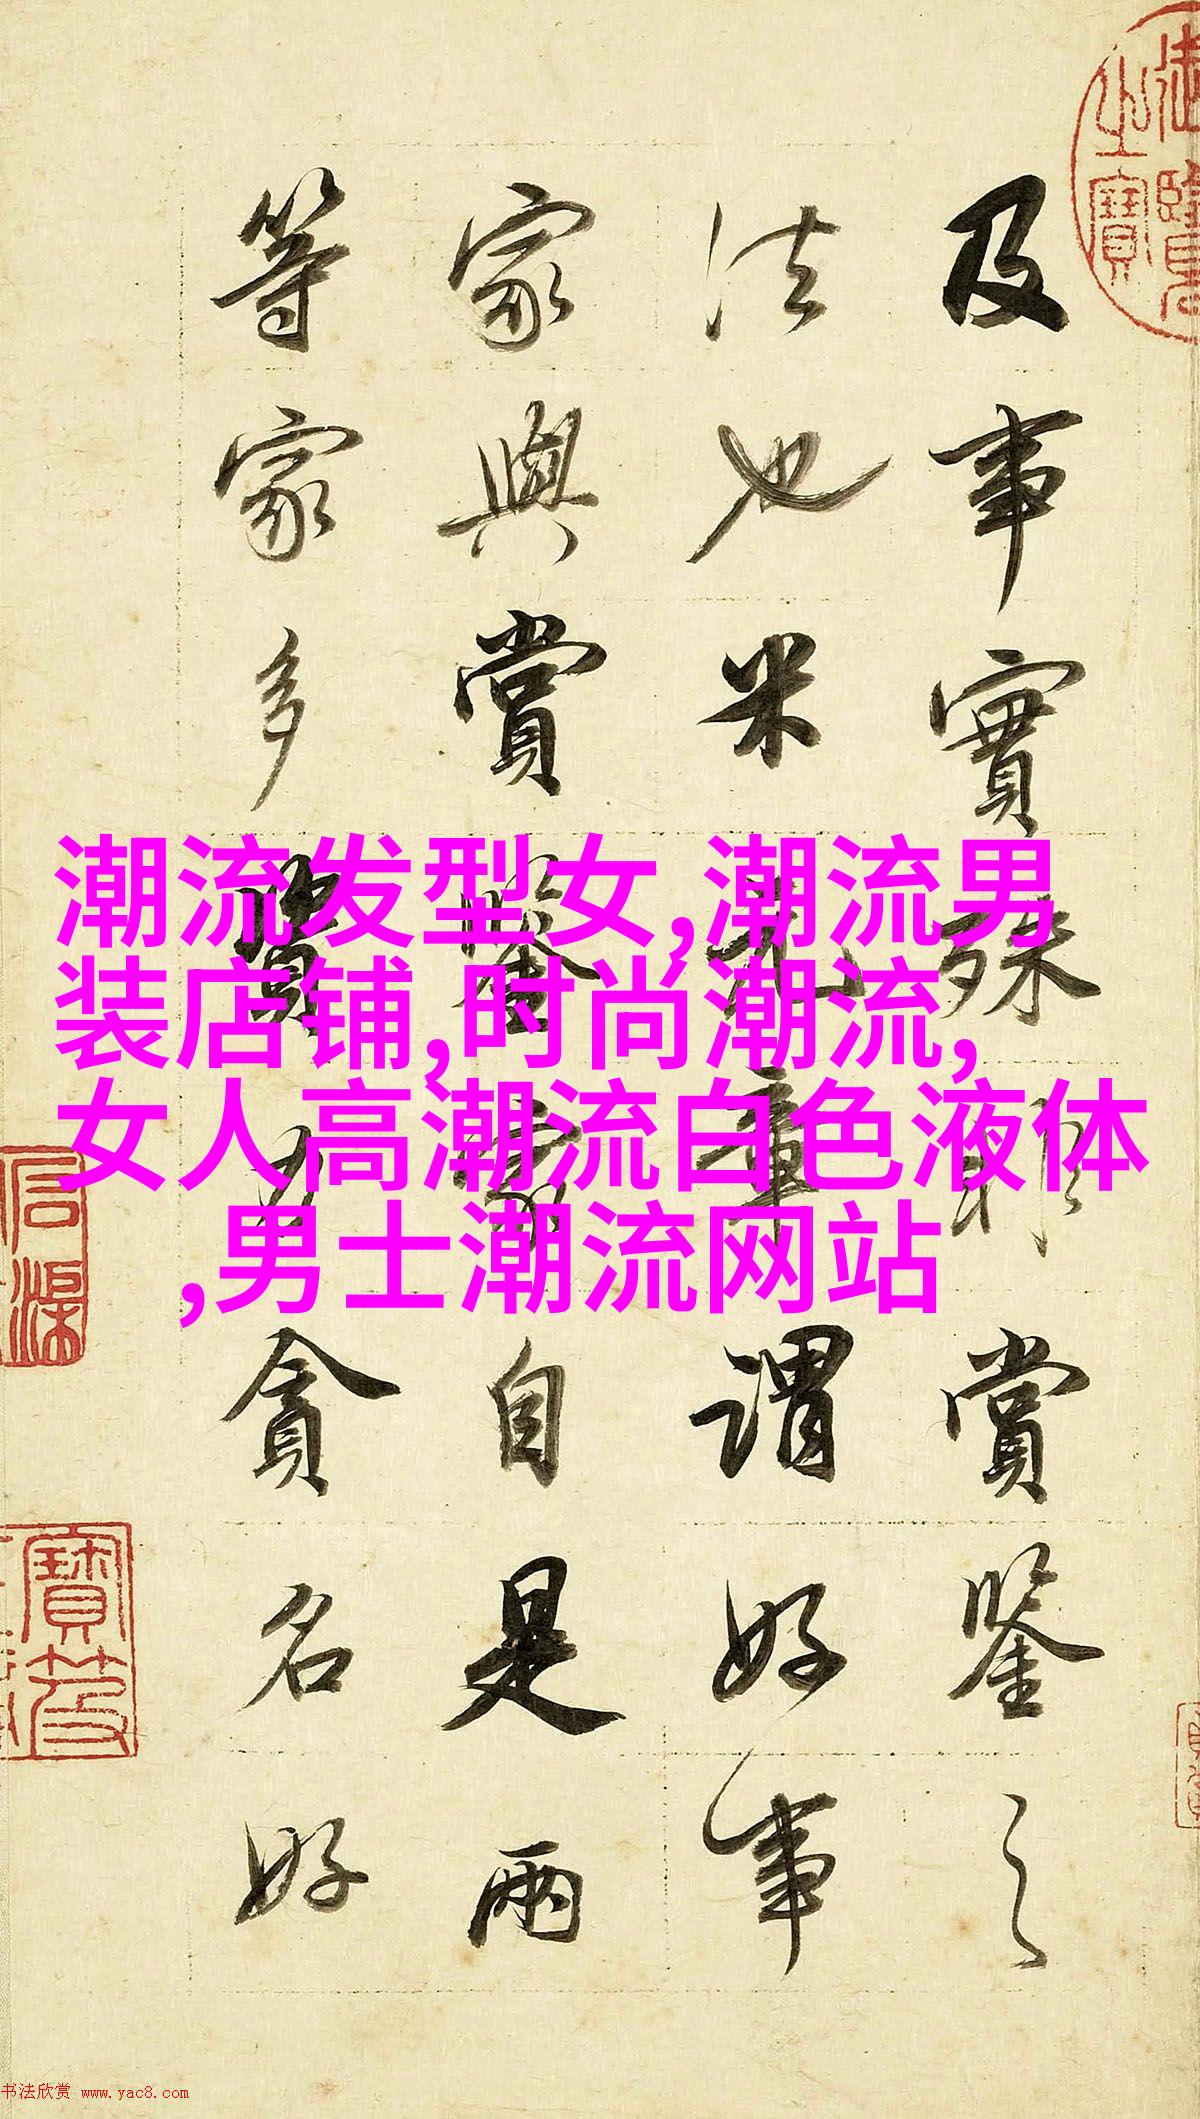 及事實殊賞鑒之
法也米元章謂好事
家與賞鑒家自是兩
等家多資力貪名好
潮流发型女,潮流男
装店铺,时尚潮流,
女人高潮流白色液体
,男士潮流网站
石渠
寶笈
书法欣赏 www.yac8.com